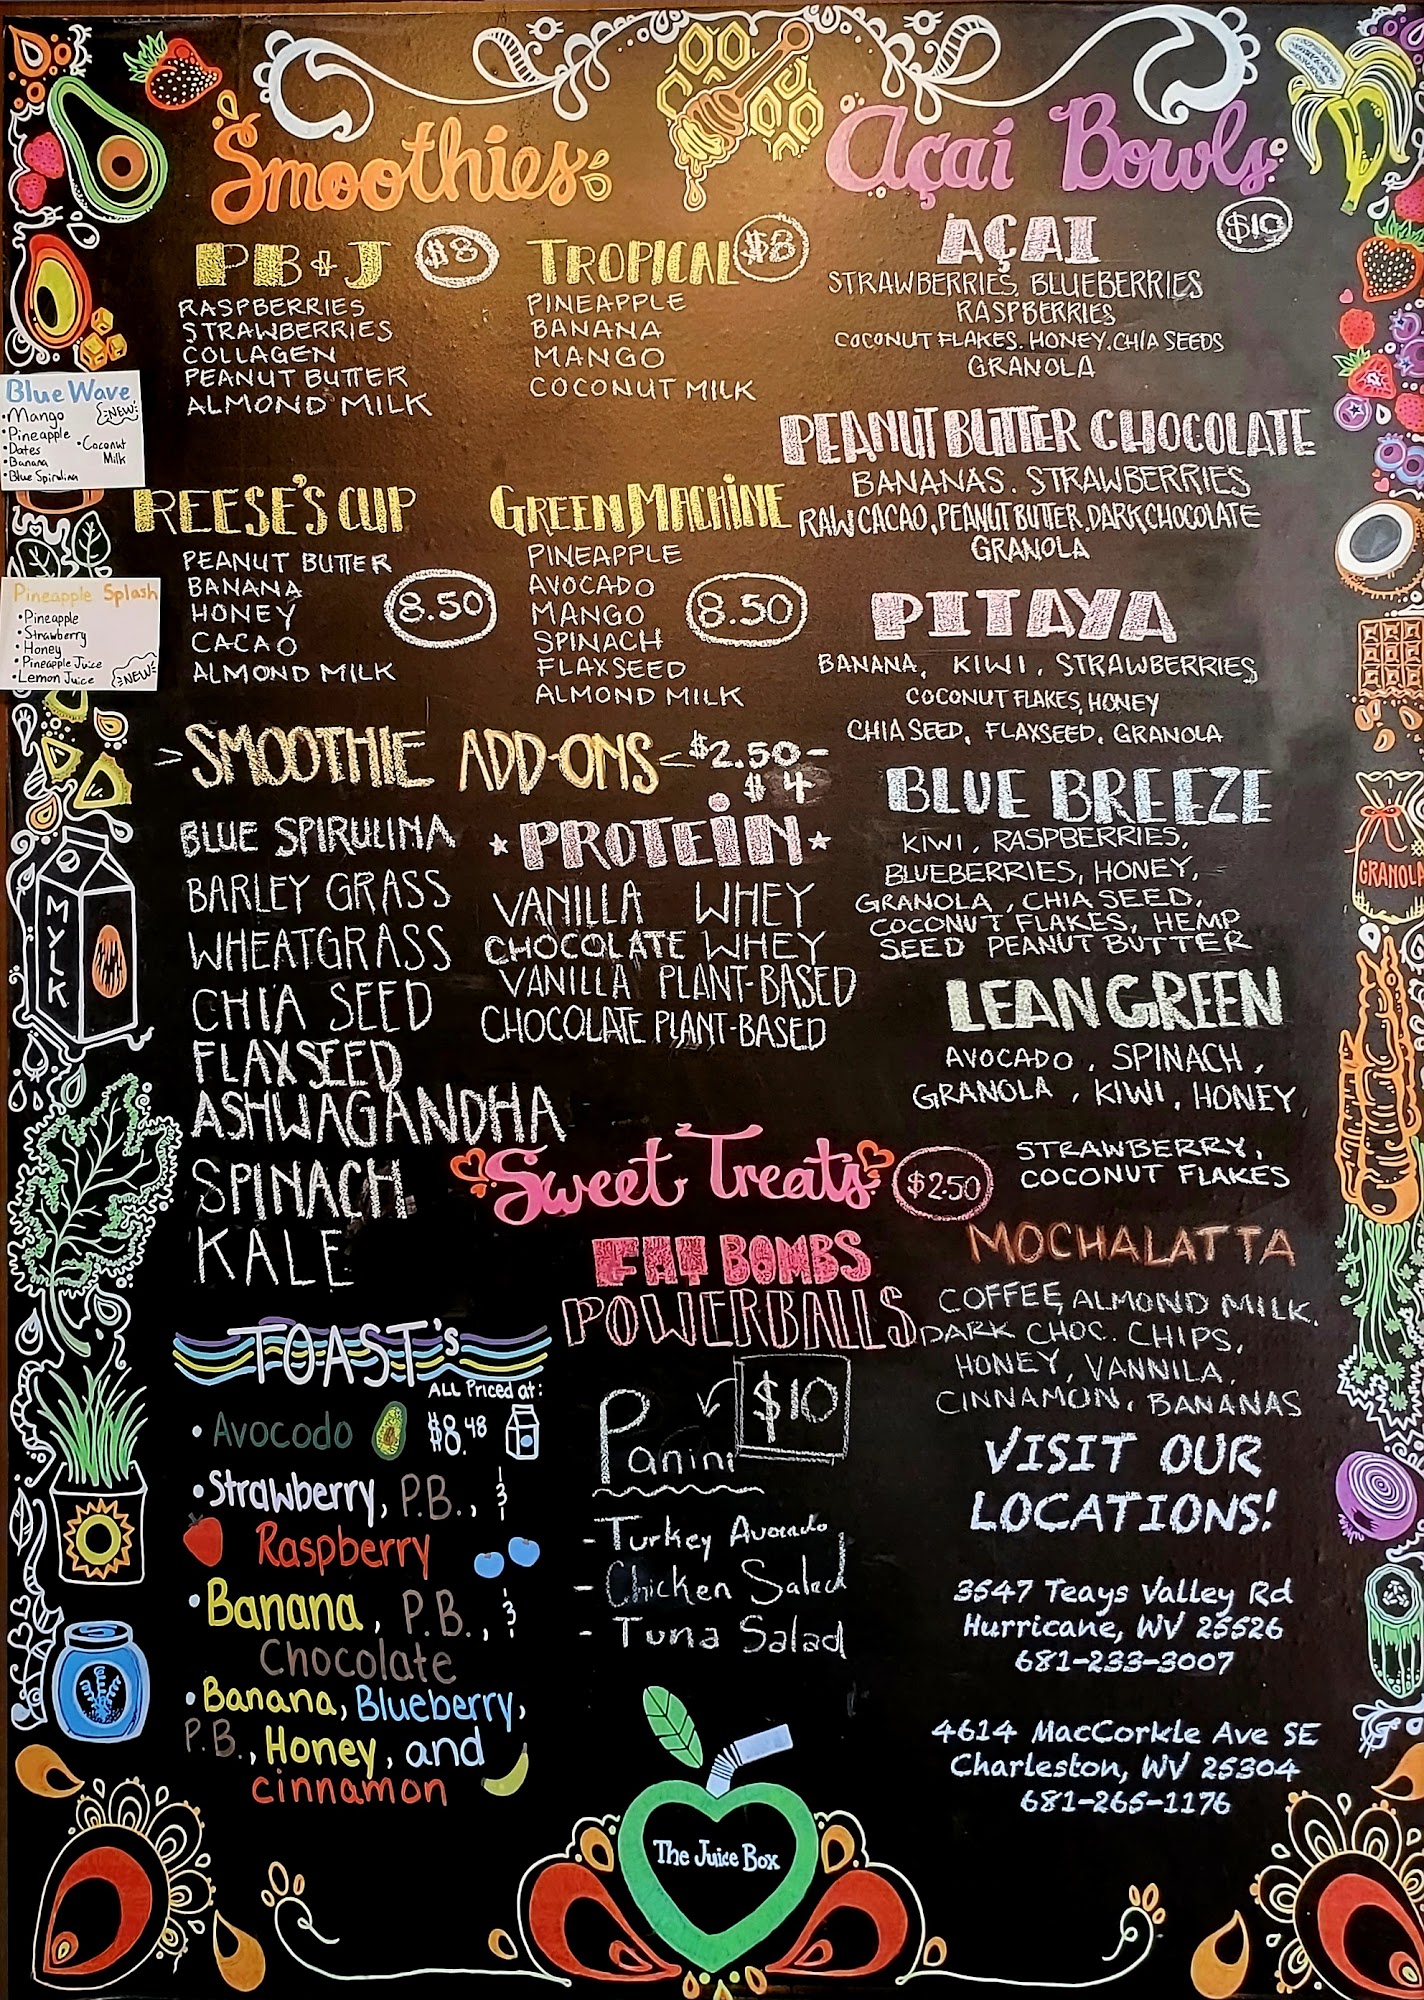 Smoothies
PB+J $8
RASPBERRIES
STRAWBERRIES
COLLAGEN
PEANUT BUTTER
ALMOND MILK
TROPICAL $8
PINEAPPLE
BANANA
MANGO
COCONUT MILK
Blue Wave
NEW
•Mango
•Pineapple
•Dates
•Banana
•Blue Spirulina
•Coconut
Milk
REESE'S CUP
PEANUT BUTTER
BANANA
HONEY
CACAO
ALMOND MILK
8.50
GREEN MACHINE
PINEAPPLE
AVOCADO
MANGO
SPINACH
FLAXSEED
ALMOND MILK
8.50
Pineapple Splash
•Pineapple
•Strawberry
•Honey
•Pineapple Juice
•Lemon Juice
NEW
SMOOTHIE ADD-ONS $2.50-
$4
BLUE SPIRULINA
BARLEY GRASS
WHEATGRASS
CHIA SEED
FLAXSEED
ASHWAGANDHA
SPINACH
KALE
PROTEIN
VANILLA WHEY
CHOCOLATE WHEY
VANILLA PLANT-BASED
CHOCOLATE PLANT-BASED
MYLK
Açai Bowls
AÇAI $10
STRAWBERRIES, BLUEBERRIES
RASPBERRIES
COCONUT FLAKES, HONEY, CHIA SEEDS
GRANOLA
PEANUT BUTTER CHOCOLATE
BANANAS. STRAWBERRIES
RAW CACAO, PEANUT BUTTER, DARK CHOCOLATE
GRANOLA
PITAYA
BANANA, KIWI, STRAWBERRIES,
COCONUT FLAKES, HONEY
CHIA SEED, FLAXSEED, GRANOLA
BLUE BREEZE
KIWI, RASPBERRIES,
BLUEBERRIES, HONEY,
GRANOLA, CHIA SEED,
COCONUT FLAKES, HEMP
SEED PEANUT BUTTER
GRANOLA
LEAN GREEN
AVOCADO, SPINACH,
GRANOLA, KIWI, HONEY,
STRAWBERRY,
COCONUT FLAKES
MOCHALATTA
COFFEE, ALMOND MILK,
DARK CHOC. CHIPS,
HONEY, VANNILA,
CINNAMON, BANANAS
Sweet Treats $2.50
FAT BOMBS
POWERBALLS
TOAST's
ALL Priced at:
•Avocodo $8.48
•Strawberry, P.B., &
Raspberry
•Banana, P.B., &
Chocolate
•Banana, Blueberry,
P.B., Honey, and
cinnamon
Panini $10
-Turkey Avocado
-Chicken Salad
-Tuna Salad
VISIT OUR
LOCATIONS!
3547 Teays Valley Rd
Hurricane, WV 25526
681-233-3007
4614 MacCorkle Ave SE
Charleston, WV 25304
681-265-1176
The Juice Box